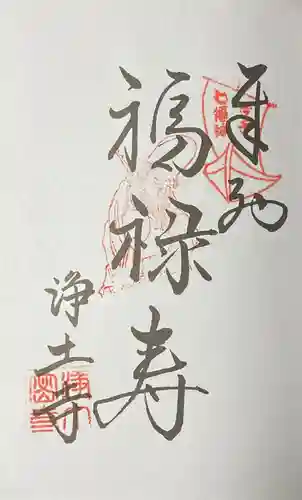 奉拝
福禄寿
浄土寺
七福神